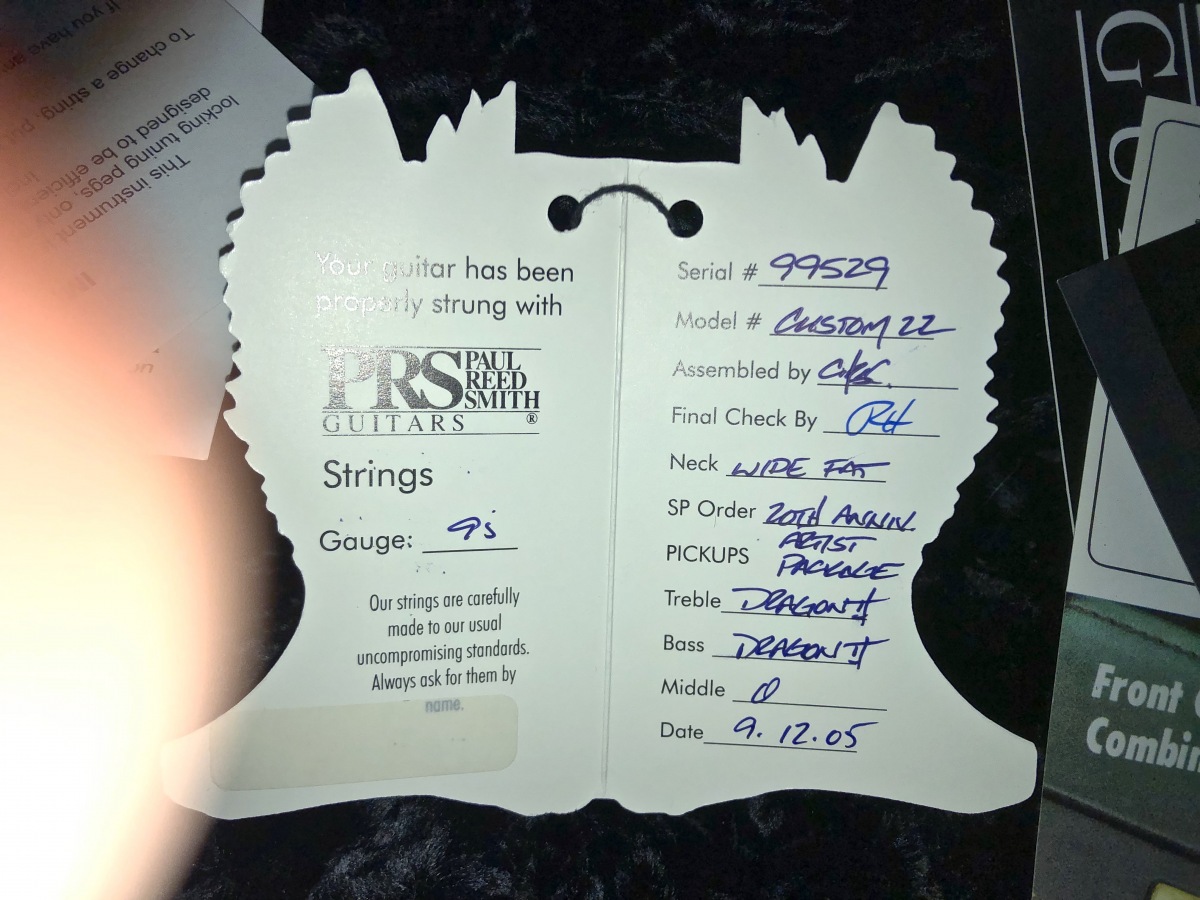 If you have an
To change a string, pu
locking tuning pegs, only
designed to be efficien
This instrument
Your guitar has been
properly strung with
PRS PAUL
REED
SMITH
GUITARS ®
Strings
Gauge: 9's
Our strings are carefully
made to our usual
uncompromising standards.
Always ask for them by
name.
Serial # 99529
Model # CUSTOM 22
Assembled by
Final Check By RH
Neck WIDE FAT
SP Order 20TH ANNIV.
ARTIST
PICKUPS PACKAGE
Treble DRAGON II
Bass DRAGON II
Middle 0
Date 9.12.05
GU
Front
Combin